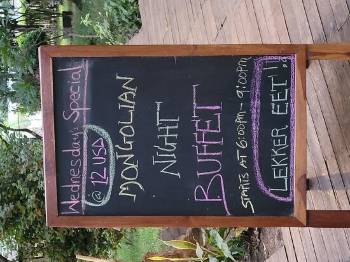 Wednesday's Special
@ 12 USD
MONGOLIAN
NIGHT
BUFFET
STARTS AT 6:00PM - 9:00PM
LEKKER EET!!